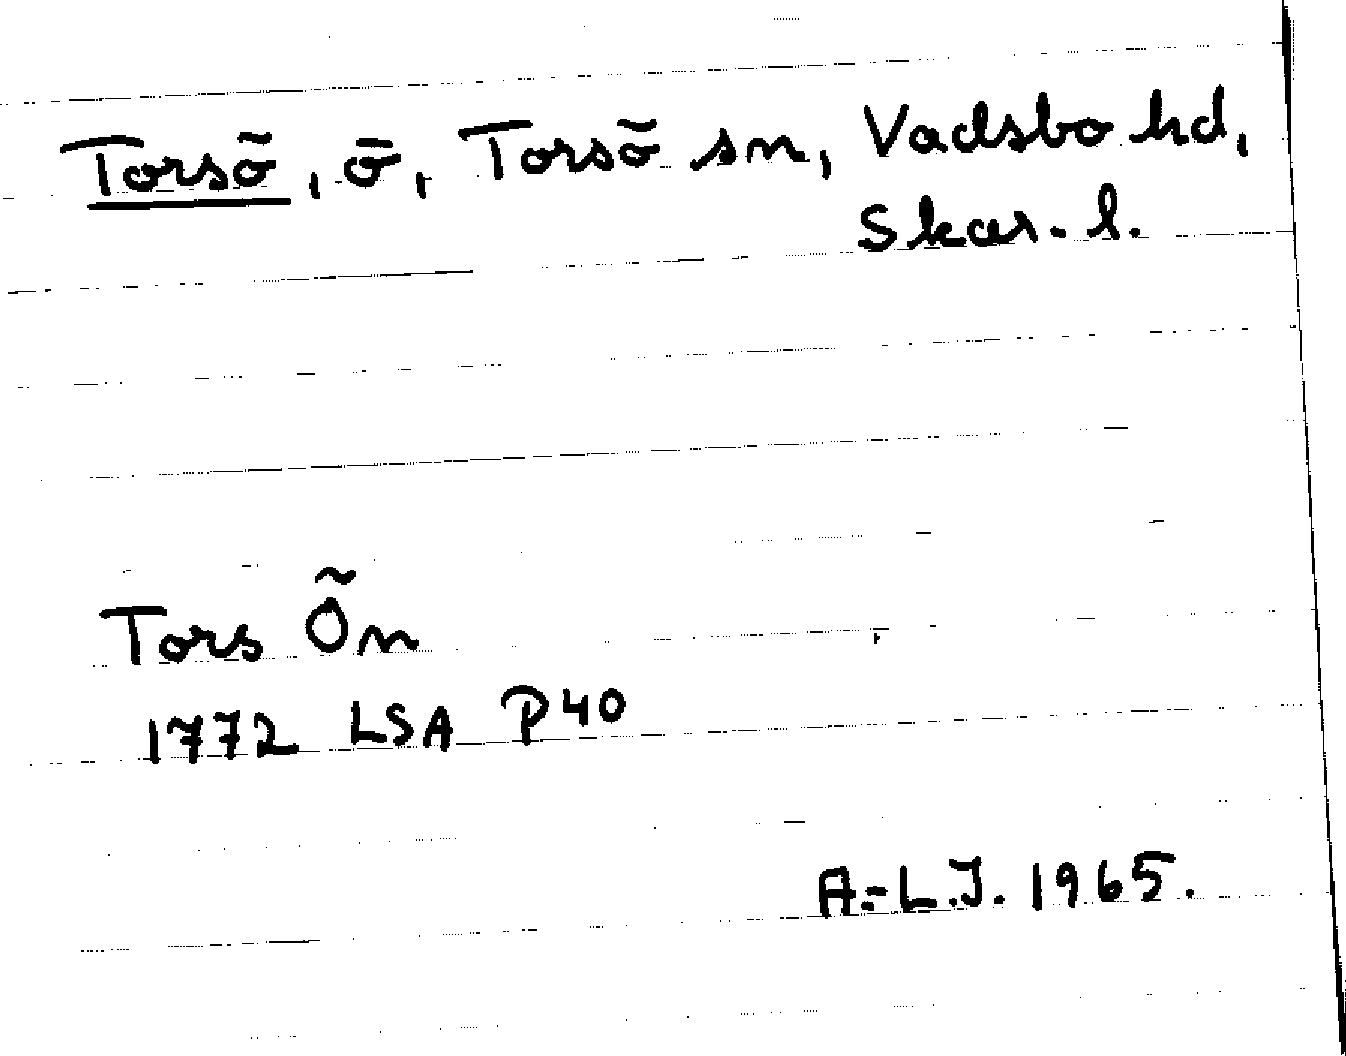 Torsö, ö, Torsö sn, Vadsbo hd,
Skar. l.
Tors Ön
1772 LSA P40
A.-L.J. 1965.